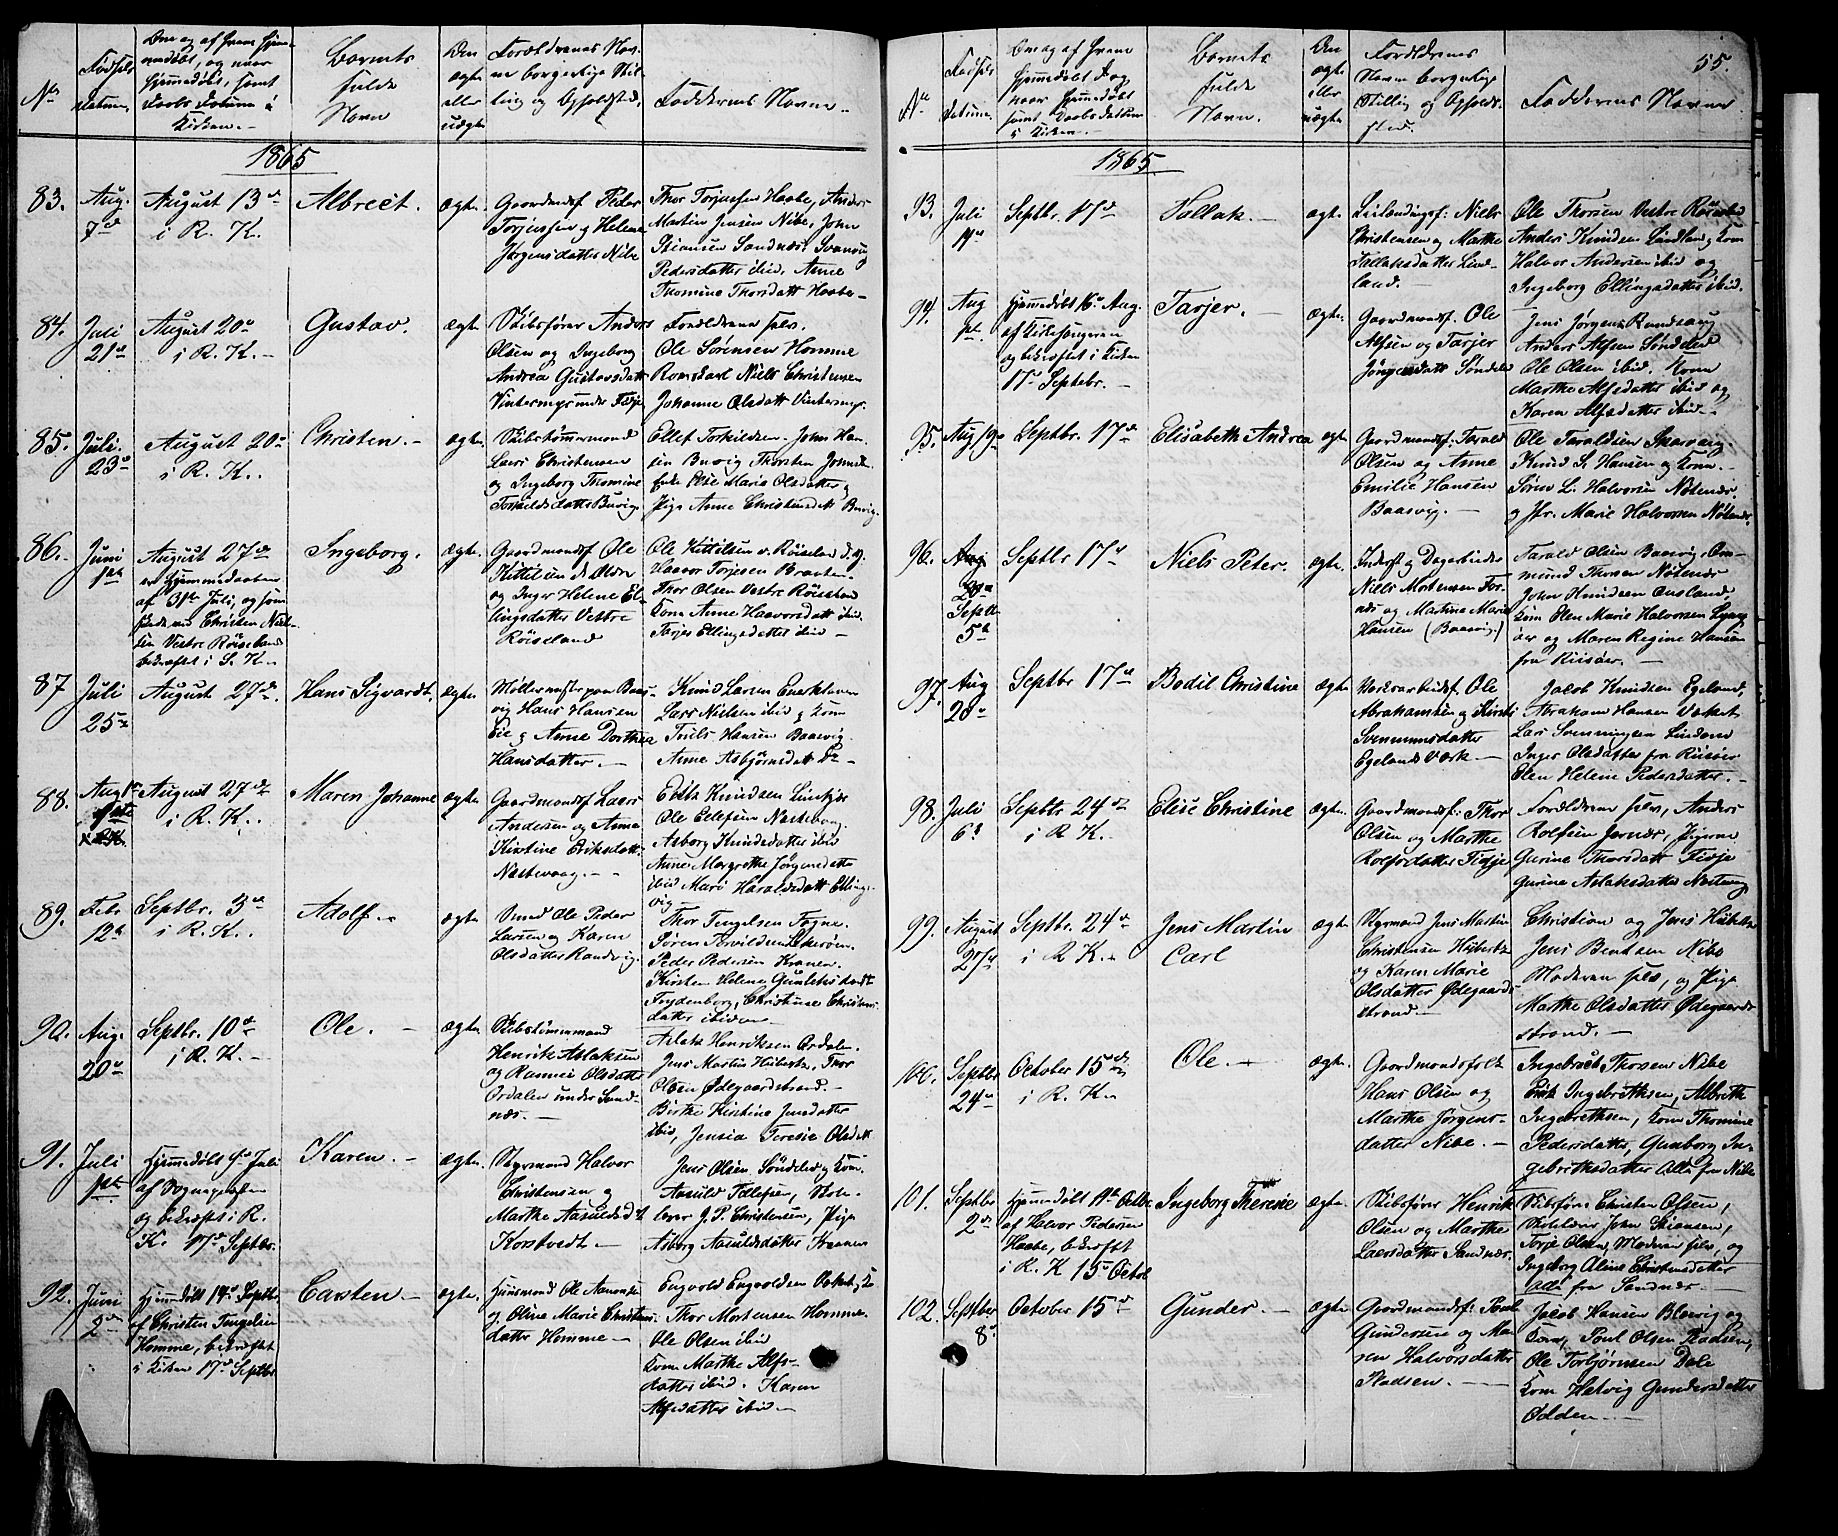 55.
No
Fødsels
datum
Om og af hvem hjem-
medøbt, og naar
hjemmedøbt, samt
Daabs Datum i
Kirken.-
Barnets
fulde
Navn
Den
ægte
eller
uægte
Forældrenes Nav-
ne borgerlige Stil-
ling og Opholdsted.
Fadderens Navne.
1865
83.
Aug.
7d
August 13d
i R. K.
Albrect.
ægte.
Gaardmandsf. Peder
Terjussen og Helene
Jørgensdatter Nibe
Thor Torjussen Haabe, Anders
Martin Jensen Nibe, John
Stiansen Sandnæs, Svanaug
Pedersdatter ibid, Anne
Thomine Thorsdatt Haabe-
84.
Juli
21d
August 20d
i R. K.-
Gustav.
ægte
Skibsfører Anders
Olsen og Ingeborg
Andrea Gustavsdatt
Vintermyr under Fidje
Forældrene selv.
Ole Sørensen Homme
Romskarl Niels Christensen
Johanne Olsdatt Vintermyr.
85.
Juli
23d
August 20d
i R. K.
Christen.-
ægte.
Skibstømmermand
Lars Christensen
og Ingeborg Thomine
Torkildsdatter Buvig
Ellef Torkildsen. John Han-
sen Buvig Thorsten
Else Marie Olsdatter
Pige Anne Christensdatt Buvig
86.
Juni
1ste
August 27de
er Hjemmedøbt
af 31te Juli,
Christen
Vestre Røiseland
bekræftet i S. K.
Ingeborg.
ægte.
Gaardmandsf Ole
Kittilsen
og Inger Helene El-
lingsdatter Vestre
Røiseland
Ole Kittilsen v. Røiseland
Haavor Torjesen Braaten.
Thor Olsen Vestre Røiseland
Kone Anne Haavorsdatt ibid.
Tarjer Ellingsdatter ibid -
87
Juli
25de
August 27de.
Hans Sigvardt.
ægte.
Møllermester paa Baas-
vig Hans Hansen
Eie og Anne Dorthea
Hansdatter.-
Knud Larsen
Lars Nielsen ibid og Kone
Truls Hansen Baasvig
Anne Asbjørnsdatt
88.
Aug
August 27de
i R. K.
Maren Johanne
ægte.
Gaardmandsf. Lars
Andersen og Anne
Kirstine Eriksdatt
Næstevaag.-
Knudsen
Ole Ellefsen Næstevaag.
Asborg Knudsdatter ibid
Anne Margrethe Jørgensdatter
ibid Mari Haraldsdatt Elling-
vig
89.
Febr
12te
Septbr. 3de
i R. K.
Adolf.
ægte
Smed Ole Peder
Larsen og Karen
Olsdatter Randvig.
Thor Tengelsen Fogne.
Søren
Peder Pedersen Kranen.
Kirsten Helene
Frydenborg, Christine Christens
datter ibid
90.
Aug.
20de
Septbr. 10de
i R. K.-
Ole.-
ægte.
Skibstømmermand
Henrik Aslaksen
og Olsdatter
Ordalen under Sand-
næs.-
Aslak Henriksen Ordalen.
Jens Martin Thor
Olsen Ødegaardstrand.-
Birthe Kirstine Jensdatter
ibid, Jensia Teresie Olsdatt
91.
Juli
1ste
Hjemmedøbt Juli
af Sognepresten
og bekræft i R.
K. 17de Septbr.
Karen.-
ægte.
Styrmand Halvor
Christensen og
Marthe Aasuldsdt
Korstvedt.-
Jens Olsen Søndeled og Kone.
Aasuld Tellefsen, Skole-
lærer J. P. Christensen, Pige
Asborg Aasuldsdatter Kranen
92.
Juni
2den
Hjemmedøbt 14de Septbr
af Christen Tengelsen
Homme, bekræftet
i Kirken 17de Septbr
Carsten-
ægte.
Huusmand Ole Aanonsen
og Oline Marie Christens-
datter Homme-
Engvold Engvoldsen
Thor Mortensen Homme
Ole Olsen ibid
Kone Marthe Alfs-
datter ibid. Karen
Alfsdatter ibid-
No
Fødsels
Datum.
Om og af hvem
hjemmedøbt og
naar hjemmedøbt
samt Daabsdatum
i Kirken.-
Barnets
fulde
Navn.
Den
ægte
eller
uægte
Forældrenes
Navne borgerlige
Stilling og Opholds-
sted.
Fadderens Navne
1865
93.
Juli
11te
Septbr. 17de
Tallak.-
ægte.
Leilændingsf: Niels
Christensen og Marthe
Tallaksdatter Lind-
land.
Ole Thorsen Vestre Røiseland
Anders Knudsen Lindland og Kone
Halvor Andersen ibid og
Ingeborg Ellingsdatter ibid.
94.
Aug
1ste
Hjemmedøbt 16de Aug.
af Kirkesangeren
og bekræftet i Kirken
17de Septbr.-
Tarjer.-
ægte.
Gaardmandsf. Ole
Alfsen og Tarjer
Jørgensdatt Søndeled
Jens Jørgens Rundsaug
Anders Alfsen Søndeled
Ole Olsen ibid. Kone
Marthe Alfsdatter ibid og
Karen Alfsdatter ibid-
95.
Aug 19de
Septbr. 17de
Elisabeth Andrea
ægte.
Gaardmandsf: Tarald
Olsen og Anne
Emilie Hansen
Baasvig.-
Ole Taraldsen
Knud S. Hansen og Kone.
Søren L. Halvorsen Nøtenæs.
og Jfr. Marie Halvorsen Nøtenæs.
96.
Aug
20de
Septbr
5te
Septbr 17de
Niels Peter.
ægte.
Inderst og Dagarbeider
Niels Mortensen For-
næs og Martine Marie
Hansen (Baasvig.)
Tarald Olsen Baasvig, Om-
mund Thorsen Nøtenæs
John Knudsen
Kone Elen Marie Halvorsen Lyng-
øer og Maren Regine Hansen
fra Riisøer.-
97.
Aug
20de
Septbr 17de
Bodil Christine
ægte.
Værksarbeidsf. Ole
Abrahamsen og Kirsti
Svenningsdatter
Egelands Værk-
Jacob Knudsen Egeland,
Abraham Hansen
Lars Svenningsen
Inger Olsdatter fra Riisøer
Elen Helene Pedersdatter.-
98.
Juli
6te
Septbr 24de
i R K.
Elise Christine
ægte.
Gaardmandsf: Thor
Olsen og Marthe
Rolfsdatter Fidje
Forældrene selv, Anders
Rolfsen Jernæs, Pigerne
Gurine Thorsdatt Fidje
Gurine Aslaksdatter Næstvaag
99.
August
21de
Septbr. 24de
i R K.-
Jens Martin
Carl
ægte.
Styrmand Jens Martin
Christensen
og Karen Marie
Olsdatter Ødegaards-
strand.-
Christian og Jens
Jens Bentsen Nibe
Moderen selv, og Pige
Marthe Olsdatter Ødegaard-
strand.-
100.
Septbr
24de
October 15de
i R. K.
Ole.-
ægte.
Gaardmandsfolk
Hans Olsen og
Marthe Jørgens-
datter Nibe.-
Ingebrect Thorsen Nibe
Erik Ingebrethsen, Albreth
Ingebrethsen, Kone Thomine
Pedersdatter, Gunborg In-
gebrethsdatter Alle fra Nibe
101.
Septbr
2den
Hjemmedøbt 11te Octbr
af Halvor Pedersen
Haabe, bekræftet
i R. K 15de Octbr
Ingeborg Theresie
ægte.
Skibsfører Henrik
Olsen og Marthe
Larsdatter Sandnæs.
Skibsfører Christen Olsen,
Skolelærer John Stiansen,
Terje Olsen, Moderen selv, og
Ingeborg Aline Christensdatter
Alle fra Sandnæs.-
102.
Septbr
8de
October 15de
Gunder.-
ægte.
Gaardmandsf: Poul
Gundersen og Ma-
ren Halvorsdatter
Stadsen.-
Jacob Hansen Blevig og
Kone, Poul Olsen Stadsen,
Ole Torbjørnsen Dale
Kone Helvig Gundersdatter
Ødden.-